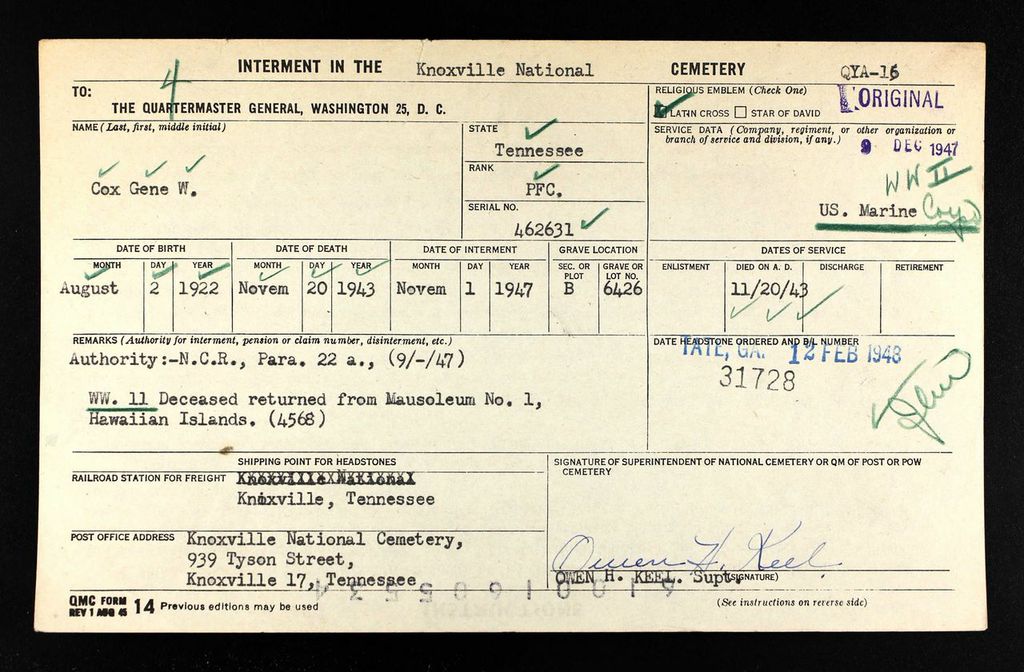 INTERMENT IN THE Knoxville National CEMETERY QYA-16
4
TO:
THE QUARTERMASTER GENERAL, WASHINGTON 25, D. C.
RELIGIOUS EMBLEM (Check One)
LATIN CROSS STAR OF DAVID
ORIGINAL
NAME (Last, first, middle initial)
Cox Gene W.
STATE
Tennessee
RANK
PFC.
SERIAL NO.
462631
SERVICE DATA (Company, regiment, or other organization or
branch of service and division, if any.)
9 DEC 1947
WW II
US. Marine Corps
DATE OF BIRTH DATE OF DEATH DATE OF INTERMENT GRAVE LOCATION DATES OF SERVICE
MONTH DAY YEAR MONTH DAY YEAR MONTH DAY YEAR SEC. OR PLOT GRAVE OR LOT NO. ENLISTMENT DIED ON A. D. DISCHARGE RETIREMENT
August 2 1922 Novem 20 1943 Novem 1 1947 B 6426 11/20/43
REMARKS (Authority for interment, pension or claim number, disinterment, etc.)
Authority:-N.C.R., Para. 22 a., (9/-/47)
WW. 11 Deceased returned from Mausoleum No. 1,
Hawaiian Islands. (4568)
DATE HEADSTONE ORDERED AND B/L NUMBER
TATE, GA. 12 FEB 1948
31728
SHIPPING POINT FOR HEADSTONES
RAILROAD STATION FOR FREIGHT
Knoxville, Tennessee
POST OFFICE ADDRESS Knoxville National Cemetery,
939 Tyson Street,
Knoxville 17, Tennessee
SIGNATURE OF SUPERINTENDENT OF NATIONAL CEMETERY OR QM OF POST OR POW
CEMETERY
Owen H. Keel
OWEN H. KEEL. Supt. (SIGNATURE)
QMC FORM
REV 1 AUG 45 14 Previous editions may be used
(See instructions on reverse side)